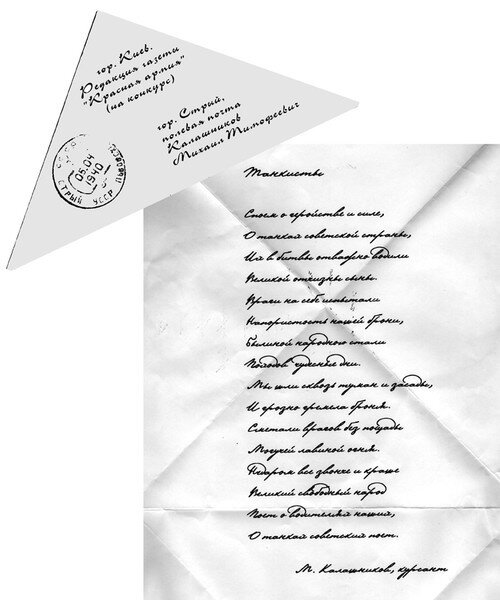 гор. Киев.
Редакция газети
"Красная армия"
(на конкурс)
гор. Стрый.
полевая почта
Калашников
Михаил Тимофеевич
СССР
05.04
1940
СТРЫЙ УССР
Танкисты
Споем о геройстве и силе,
О танках советской страны,
Их в битвы отважно водили
Великой отчизны сыны.
Враги на себе испытали
Напористость нашей брони,
Былиной народною стали
Походов чудесные дни.
Мы шли сквозь туман и засады,
И грозно гремела броня.
Сметали врагов без пощады
Могучей лавиной огня.
Недаром все звонче и краше
Великий свободный народ
Поет о водителях наших,
О танках советских поет.
М. Калашников, курсант